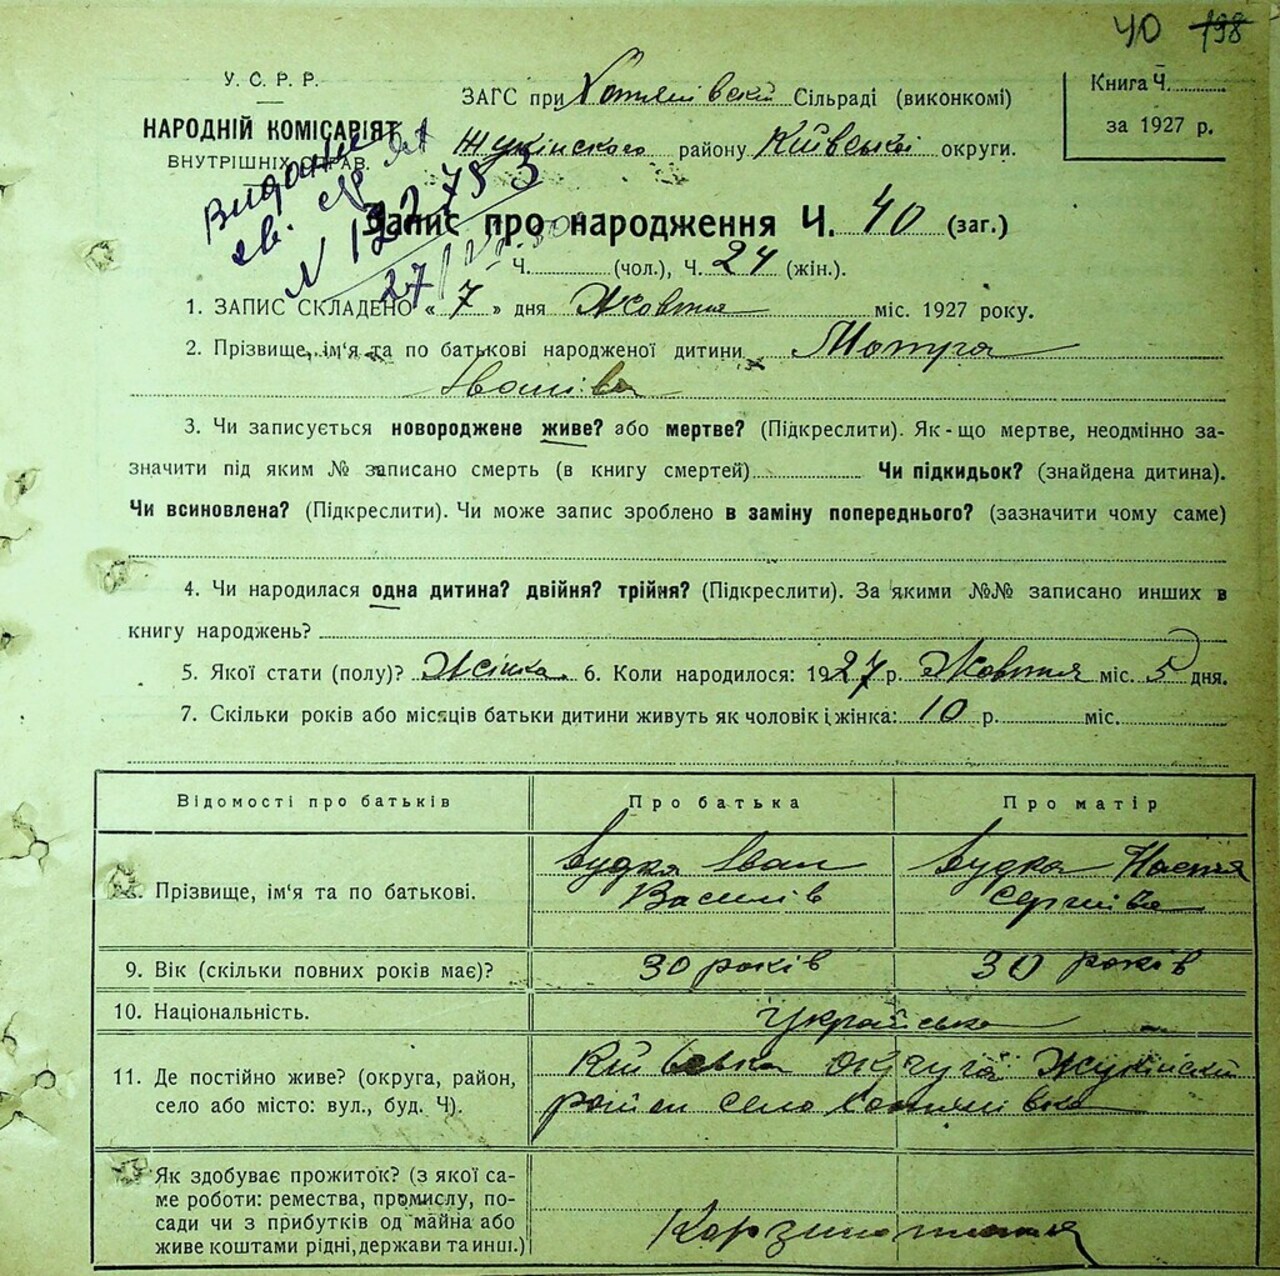 40 198
У. С. Р. Р.
НАРОДНІЙ КОМІСАРІЯТ
ВНУТРІШНІХ СПРАВ.
ЗАГС при Хотянівскій Сільраді (виконкомі)
Жукінского району Київської округи.
Книга Ч.
за 1927 р.
Видане
N 122753
27
Запис про народження Ч. 40 (заг.)
Ч. (чол.), Ч. 24 (жін.).
1. ЗАПИС СКЛАДЕНО « 7 » дня Жовтня міс. 1927 року.
2. Прізвище, ім‘я та по батькові народженої дитини Мотря
Іванівна
3. Чи записується новороджене живе? або мертве? (Підкреслити). Як-що мертве, неодмінно за-
значити під яким № записано смерть (в книгу смертей) Чи підкидьок? (знайдена дитина).
Чи всиновлена? (Підкреслити). Чи може запис зроблено в заміну попереднього? (зазначити чому саме)
4. Чи народилася одна дитина? двійня? трійня? (Підкреслити). За якими №№ записано инших в
книгу народжень?
5. Якої стати (полу)? Жінка. 6. Коли народилося: 1927 р. Жовтня міс. 5 дня.
7. Скільки років або місяців батьки дитини живуть як чоловік і жінка: 10 р. міс.
Відомості про батьків Про батька Про матір
Прізвище, ім‘я та по батькові. Дудка Іван Василів Дудка Настя Сергиівна
9. Вік (скільки повних років має)? 30 років 30 років
10. Національність. Українська
11. Де постійно живе? (округа, район, село або місто: вул., буд. Ч). Київська округа Жукінский район село Хотянівка
Як здобуває прожиток? (з якої са-
ме роботи: ремества, промислу, по-
сади чи з прибутків од майна або
живе коштами рідні, держави та инш.)